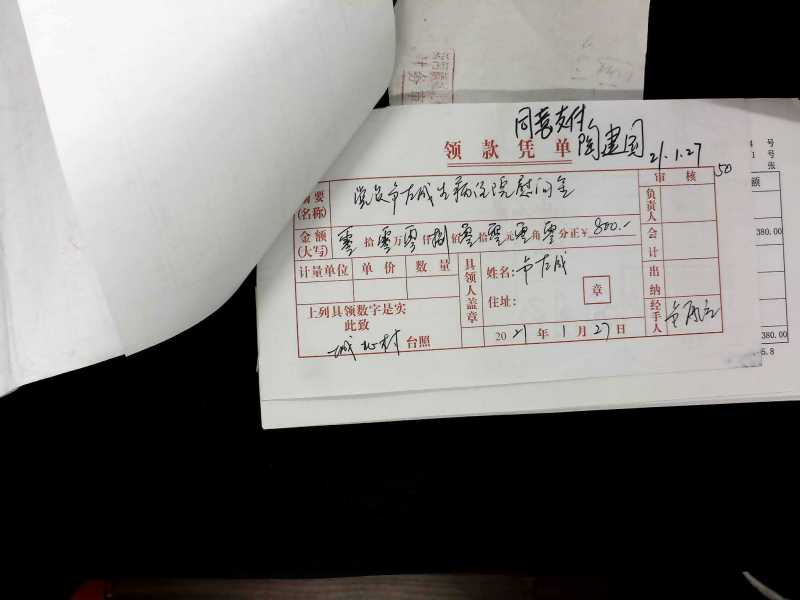 同意支付
陶建国
21.1.27
领款凭单
50
审核
摘要
(名称)
生病住院慰问金
负责人
金额
(大写)
零拾零万零仟捌佰零拾零元零角零分正¥800.-
会计
计量单位 单价 数量
具领人盖章
姓名:
住址:
章
出纳
上列具领数字是实
此致
台照
2021年1月27日
经手人
号
号
张
额
380.00
380.00
5.8